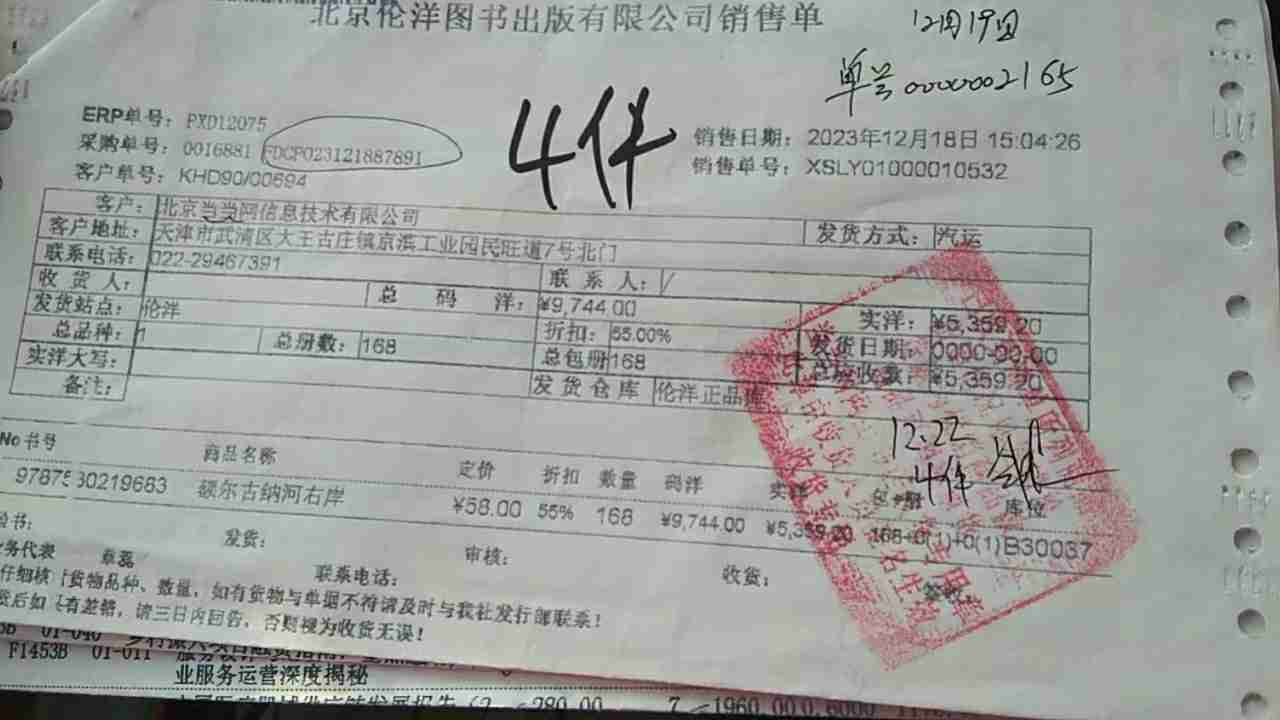 北京伦洋图书出版有限公司销售单
12月19日
单号0000002165
4件
ERP单号: PXD12075
采购单号: 0016881 FDCP023121887891
客户单号: KHD90/00694
销售日期: 2023年12月18日 15:04:26
销售单号: XSLY01000010532
客户: 北京当当网信息技术有限公司 发货方式: 汽运
客户地址: 天津市武清区大王古庄镇京滨工业园民旺道7号北门
联系电话: 022-29467391 联系人: /
收货人: 总码洋: ¥9,744.00 实洋: ¥5,359.20
发货站点: 伦洋 折扣: 55.00% 发货日期: 0000-00-00
总品种: 1 总册数: 168 总包册 168 总应收款: ¥5,359.20
实洋大写: 发货仓库 伦洋正品库
备注:
12.22
4件
No 书号 商品名称 定价 折扣 数量 码洋 实洋 包*册 库位
9787530219683 额尔古纳河右岸 ¥58.00 55% 168 ¥9,744.00 ¥5,359.20 168+0(1)+0(1) B30037
务代表 章磊 发货: 联系电话: 审核: 收货:
仔细核 货物品种、数量, 如有货物与单据不符请及时与我社发行部联系!
货后如 有差错, 请三日内回告, 否则视为收货无误!
01-040
F1453B 01-011
业服务运营深度揭秘
280.00 7 1960.00 0.6000